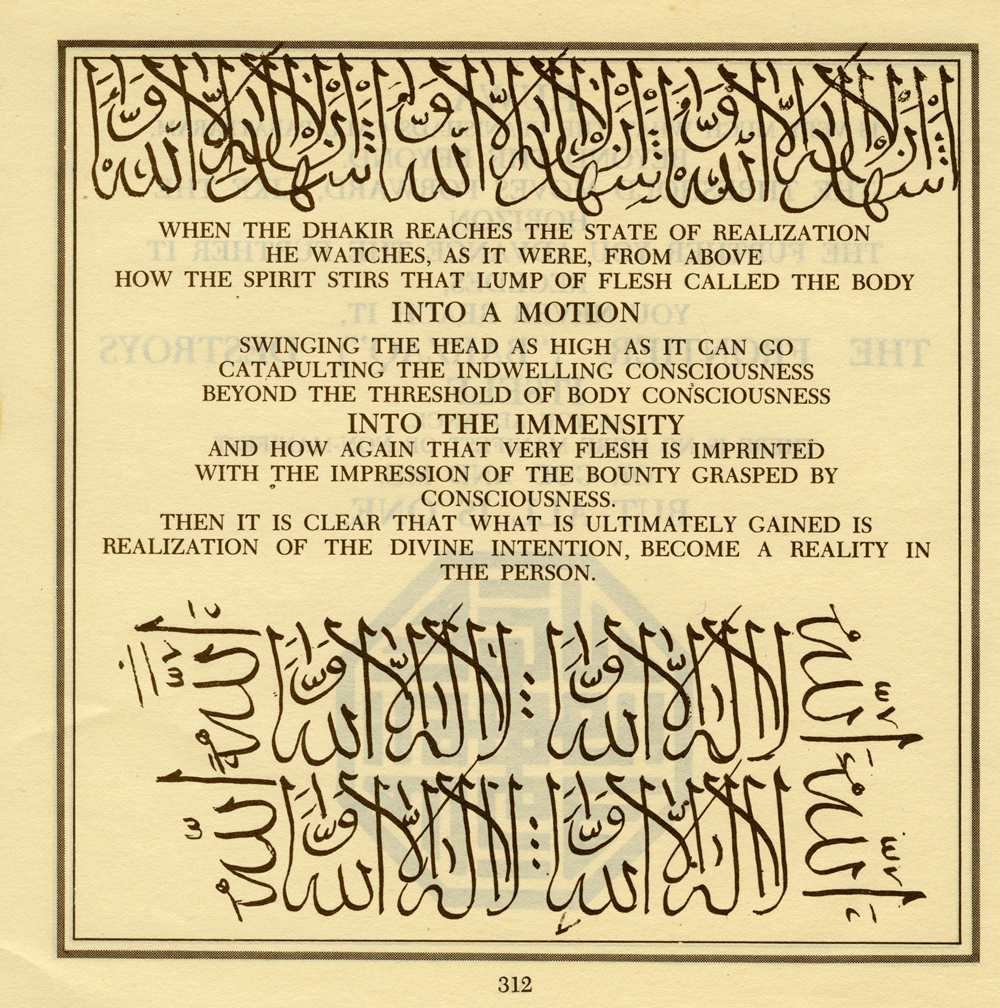 اشهد ان لا اله الا الله اشهد ان لا اله الا الله اشهد ان لا اله الا الله
WHEN THE DHAKIR REACHES THE STATE OF REALIZATION
HE WATCHES, AS IT WERE, FROM ABOVE
HOW THE SPIRIT STIRS THAT LUMP OF FLESH CALLED THE BODY
INTO A MOTION
SWINGING THE HEAD AS HIGH AS IT CAN GO
CATAPULTING THE INDWELLING CONSCIOUSNESS
BEYOND THE THRESHOLD OF BODY CONSCIOUSNESS
INTO THE IMMENSITY
AND HOW AGAIN THAT VERY FLESH IS IMPRINTED
WITH THE IMPRESSION OF THE BOUNTY GRASPED BY
CONSCIOUSNESS.
THEN IT IS CLEAR THAT WHAT IS ULTIMATELY GAINED IS
REALIZATION OF THE DIVINE INTENTION, BECOME A REALITY IN
THE PERSON.
الله لا اله الا الله لا اله الا الله الله
الله لا اله الا الله لا اله الا الله الله
312